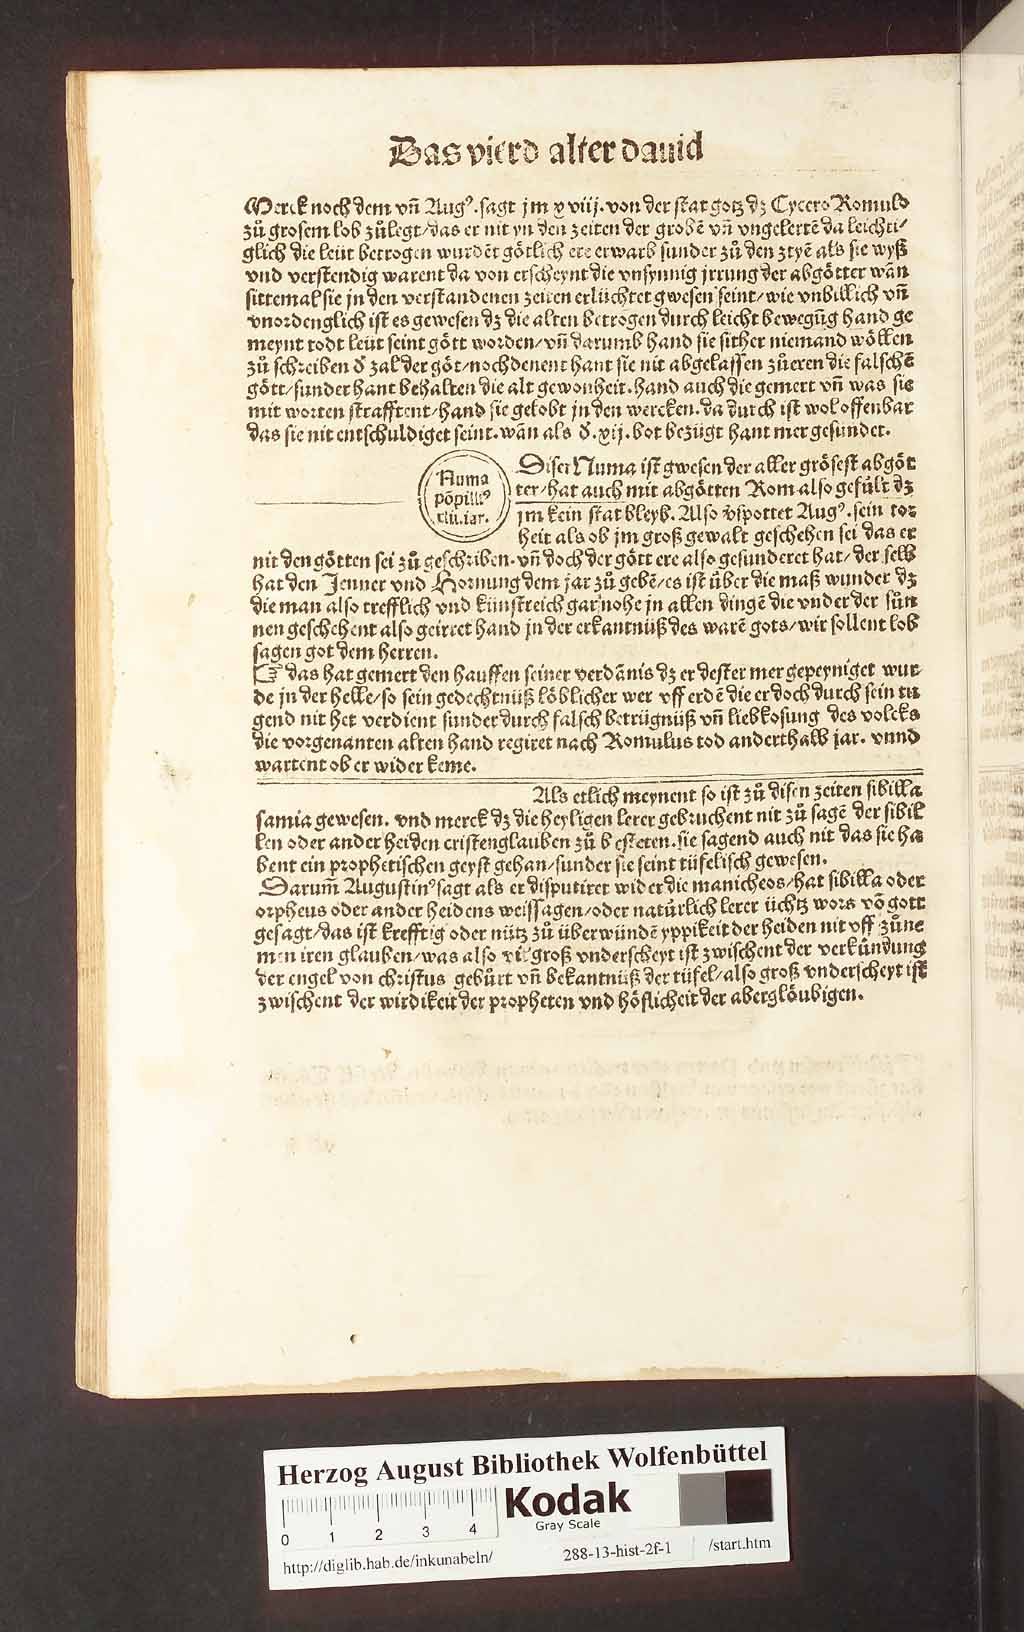 Das vierd alter dauid
Merck noch dem vn̄ Augꝰ. sagt jm xviij. von der stat gotz dz Cycero Romulo
zů grosem lob zůlegt/das er nit yn den zeiten der grobē vn̄ vngelertē da leichti/
glich die leüt betrogen wurdēt götlich ere erwarb sunder zů den ztyē als sie wyß
vnd verstendig warent da von erscheynt die vnsynnig jrrung der abgötter wān
sittemal sie jn den verstandenen zeiten erlüchtet gwesen seint/wie vnbillich vn̄
vnordenglich ist es gewesen dz die alten betrogen durch leicht bewegūg hand ge
meynt todt leüt seint gött worden/vn̄ darumb hand sie sither niemand wöllen
zů schreiben đ zal der göt/nochdenent hant sie nit abgelassen zůeren die falschē
gött/sunder hant behalten die alt gewonheit. hand auch die gemert vn̄ was sie
mit worten strafftent/hand sie gelobt jn den wercken. da durch ist wol offenbar
das sie nit entschuldiget seint. wān als đ. xij. bot bezügt hant mer gesundet.
Numa
pōpiliꝰ
xlii. iar.
Diser Numa ist gwesen der aller grösest abgöt
ter/hat auch mit abgötten Rom also gefült dz
jm kein stat bleyb. Also vspottet Augꝰ. sein tor
heit als ob jm groß gewalt geschehen sei das er
nit den götten sei zů geschriben. vn̄ doch der gött ere also gesunderet hat/der selb
hat den Jenner vnd Hornung dem jar zů gebē/es ist über die maß wunder dz
die man also trefflich vnd künstreich gar nohe jn allen dingē die vnder der sün
nen geschehent also geirret hand jn der erkantnüß des warē gots/wir sollent lob
sagen got dem herren.
☞ das hat gemert den hauffen seiner verdānis dz er dester mer gepeyniget wur
de jn der helle/so sein gedechtnüß löblicher wer vff erdē die er doch durch sein tu
gend nit het verdient sunder durch falsch betrügnüß vn̄ liebkosung des volcks
die vorgenanten alten hand regiret nach Romulus tod anderthalb jar. vnnd
wartent ob er wider keme.
Als etlich meynent so ist zů disen zeiten sibilla
samia gewesen. vnd merck dz die heyligen lerer gebruchent nit zů sagē der sibil
len oder ander heiden cristenglauben zů besteten. sie sagend auch nit das sie ha
bent ein prophetischen geyst gehan/sunder sie seint tüfelisch gewesen.
Darum̄ Augustinꝰ sagt als er disputiret wider die manicheos/hat sibilla oder
orpheus oder ander heidens weissagen/oder natürlich lerer üchtz wors vō gott
gesagt/das ist krefftig oder nütz zů überwündē yppikeit der heiden nit vff zůne
men iren glauben/was also vil groß vnderscheyt ist zwischent der verkündung
der engel von christus gebürt vn̄ bekantnüß der tüfel/also groß vnderscheyt ist
zwischent der wirdikeit der propheten vnd höflicheit der aberglöubigen.
Herzog August Bibliothek Wolfenbüttel
Kodak
Gray Scale
0 1 2 3 4
http://diglib.hab.de/inkunabeln/ 288-13-hist-2f-1 /start.htm